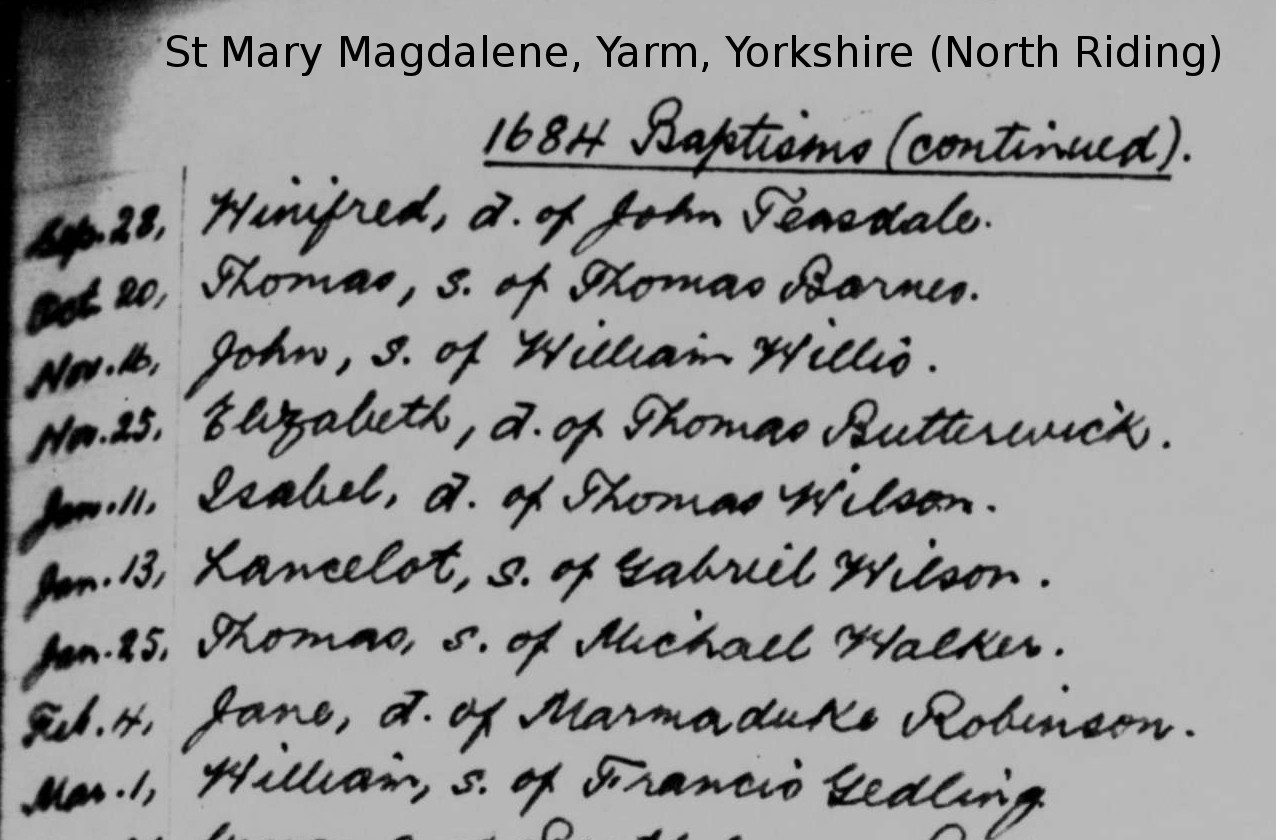 St Mary Magdalene, Yarm, Yorkshire (North Riding)
1684 Baptisms (continued).
Sep. 28, Winifred, d. of John Teasdale.
Oct. 20, Thomas, s. of Thomas Barnes.
Nov. 16, John, s. of William Willis.
Nov. 25, Elizabeth, d. of Thomas Butterwick.
Jan. 11, Isabel, d. of Thomas Wilson.
Jan. 13, Lancelot, s. of Gabriel Wilson.
Jan. 25, Thomas, s. of Michael Walker.
Feb. 4, Jane, d. of Marmaduke Robinson.
Mar. 1, William, s. of Francis Gedling